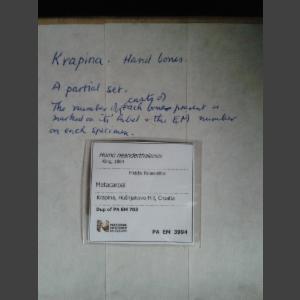 Krapina. Hand bones.
A partial set.
casts of
The number of each bone present is
marked on its label & the EM number
on each specimen.
Homo neanderthalensis
King, 1864
Middle Palaeolithic
Metacarpal
Krapina, Hušnjakovo Hill, Croatia
Dup of PA EM 703
NATURAL
HISTORY
MUSEUM
PA EM 3994